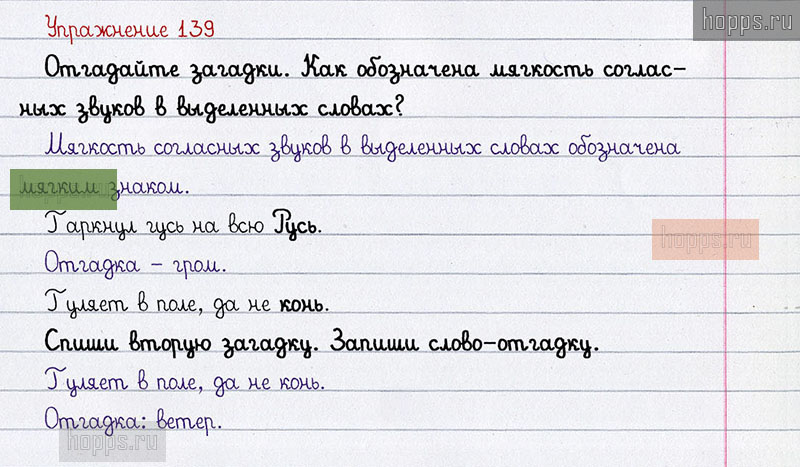 hopps.ru
Упражнение 139
Отгадайте загадки. Как обозначена мягкость соглас-
ных звуков в выделенных словах?
Мягкость согласных звуков в выделенных словах обозначена
мягким знаком.
Гаркнул гусь на всю Русь.
hopps.ru
Отгадка – гром.
Гуляет в поле, да не конь.
Спиши вторую загадку. Запиши слово-отгадку.
Гуляет в поле, да не конь.
Отгадка: ветер.
hopps.ru